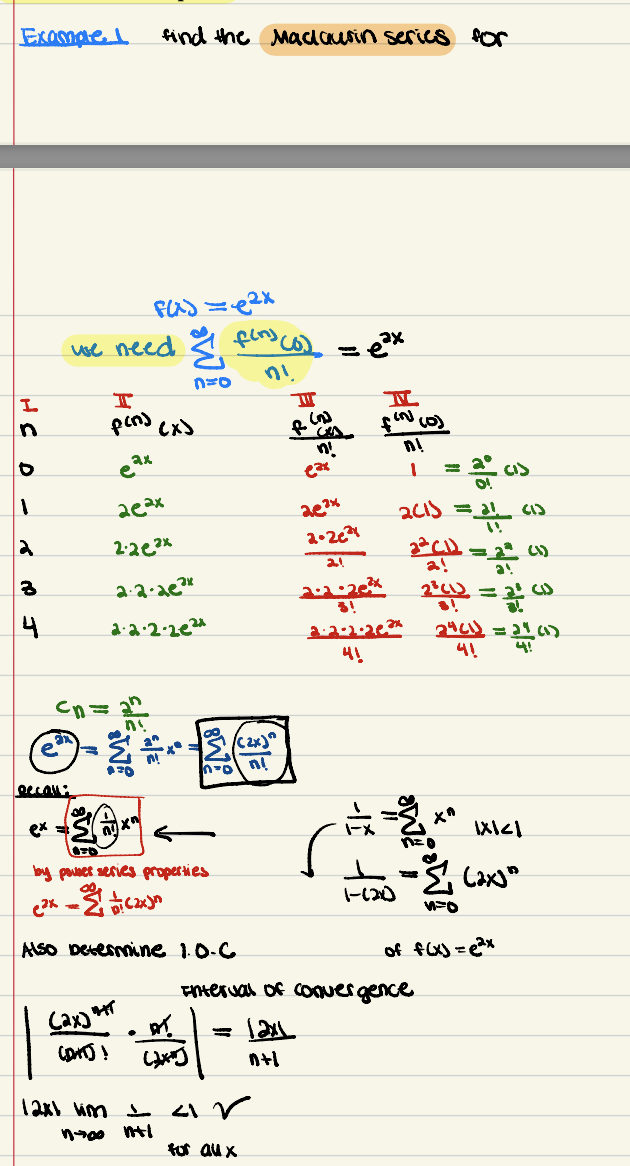 Example 1 find the Maclaurin series for
f(x) = e^{2x}
we need \sum_{n=0}^{\infty} \frac{f^{(n)}(0)}{n!} = e^{2x}
I II III IV
n f^{(n)}(x) \frac{f^{(n)}(x)}{n!} \frac{f^{(n)}(0)}{n!}
0 e^{2x} e^{2x} 1 = \frac{2^0}{0!}(1)
1 2e^{2x} 2e^{2x} 2(1) = \frac{2^1}{1!}(1)
2 2·2e^{2x} \frac{2·2e^{2x}}{2!} \frac{2^2(1)}{2!} = \frac{2^2}{2!}(1)
3 2·2·2e^{2x} \frac{2·2·2e^{2x}}{3!} \frac{2^3(1)}{3!} = \frac{2^3}{3!}(1)
4 2·2·2·2e^{2x} \frac{2·2·2·2e^{2x}}{4!} \frac{2^4(1)}{4!} = \frac{2^4}{4!}(1)
C_n = \frac{2^n}{n!}
e^{2x} = \sum_{n=0}^{\infty} \frac{2^n}{n!} x^n = \sum_{n=0}^{\infty} \frac{(2x)^n}{n!}
Recall:
e^x = \sum_{n=0}^{\infty} \frac{1}{n!} x^n ← \frac{1}{1-x} = \sum_{n=0}^{\infty} x^n |x|<1
by power series properties \frac{1}{1-(2x)} = \sum_{n=0}^{\infty} (2x)^n
e^{2x} = \sum_{n=0}^{\infty} \frac{1}{n!}(2x)^n
Also Determine I.O.C of f(x) = e^{2x}
Interval of convergence
\left| \frac{(2x)^{n+1}}{(n+1)!} · \frac{n!}{(2x^n)} \right| = \frac{|2x|}{n+1}
|2x| \lim_{n→∞} \frac{1}{n+1} <1 ✓
for all x